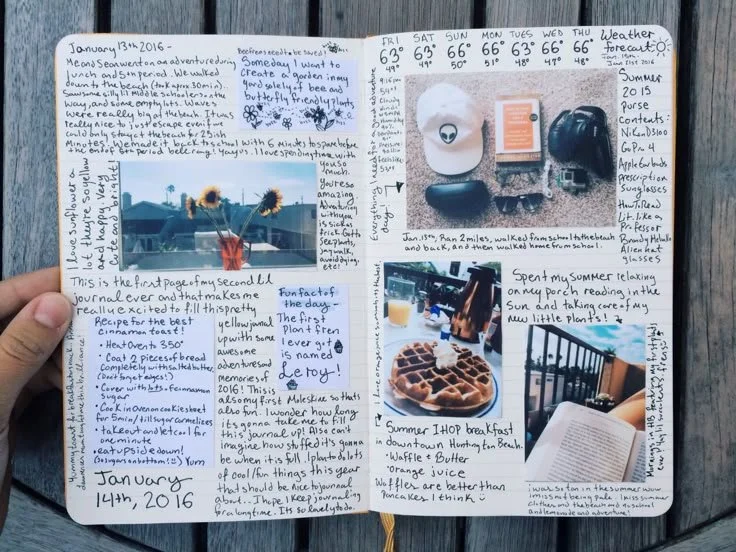 January 13th 2016 -
Me and Sea went on an adventure during
lunch and 5th period. We walked
down to the beach (took approx 30 min).
Saw some silly lil middle schoolers on the
way, and some empty lots. Waves
were really big at the beach. It was
really nice to just escape even if we
could only stay at the beach for 25ish
minutes. We made it back to school with 6 minutes to spare before
the end of 5th period bell rang! Yay us. I love spending time with
you so
much.
you're so
amazing.
Adventuring
with you
is sick as
frick. Gotta
see plants,
jaywalk,
avoid dying,
etc!
Bee frens need to be saved!
Someday I want to
create a garden in my
yard solely of bee and
butterfly friendly plants
I love sunflowers a
lot they're so yellow
and happy. very
cute and bright!
This is the first page of my second lil
journal ever and that makes me
really excited to fill this pretty
yellow journal
up with some
awesome
adventures and
memories of
2016! This is
also my first Moleskine so that's
also fun. I wonder how long
it's gonna take me to fill
this journal up! Also can't
imagine how stuffed it's gonna
be when it is full. I plan to do lots
of cool/fun things this year
that should be nice to journal
about. I hope I keep journaling
for a long time. It's so lovely to do.
Fun fact of
the day -
The first
plant fren
I ever got
is named
Leroy!
Recipe for the best
cinnamon toast!
• Heat oven to 350°
• Coat 2 pieces of bread
completely with salted butter
(don't forget edges!)
• Cover with lots of cinnamon
sugar
• Cook in oven on cookie sheet
for 5 min/till sugar caramelizes
• take out and let cool for
one minute
• eat upside down!
(so sugar's on bottom! :) Yum
January
14th, 2016
FRI SAT SUN MON TUES WED THU
63° 63° 66° 66° 63° 66° 66°
49° 49° 50° 51° 48° 48° 48°
Weather
forecast
Jan. 15th -
Jan 21st 2016
9:16pm
54°F
Cloudy
Everything I need for a good adventure
day!
Summer
2015
Purse
Contents:
Nikon D3100
GoPro 4
Apple Earbuds
prescription
Sunglasses
How To Read
Lit. like a
Professor
Brandy Melville
Alien hat
glasses
Jan. 13th, Ran 2 miles, walked from school to the beach
and back, and then walked home from school.
Spent my summer relaxing
on my porch reading in the
sun and taking care of my
new little plants!
I love orange juice so much its the best.
Summer IHOP breakfast
in downtown Huntington Beach.
• Waffle & Butter
• orange juice
Waffles are better than
Pancakes I think
i was so tan in the summer wow
i miss not being pale. I miss summer
clothes and the beach and no school
and lemonade and adventure!